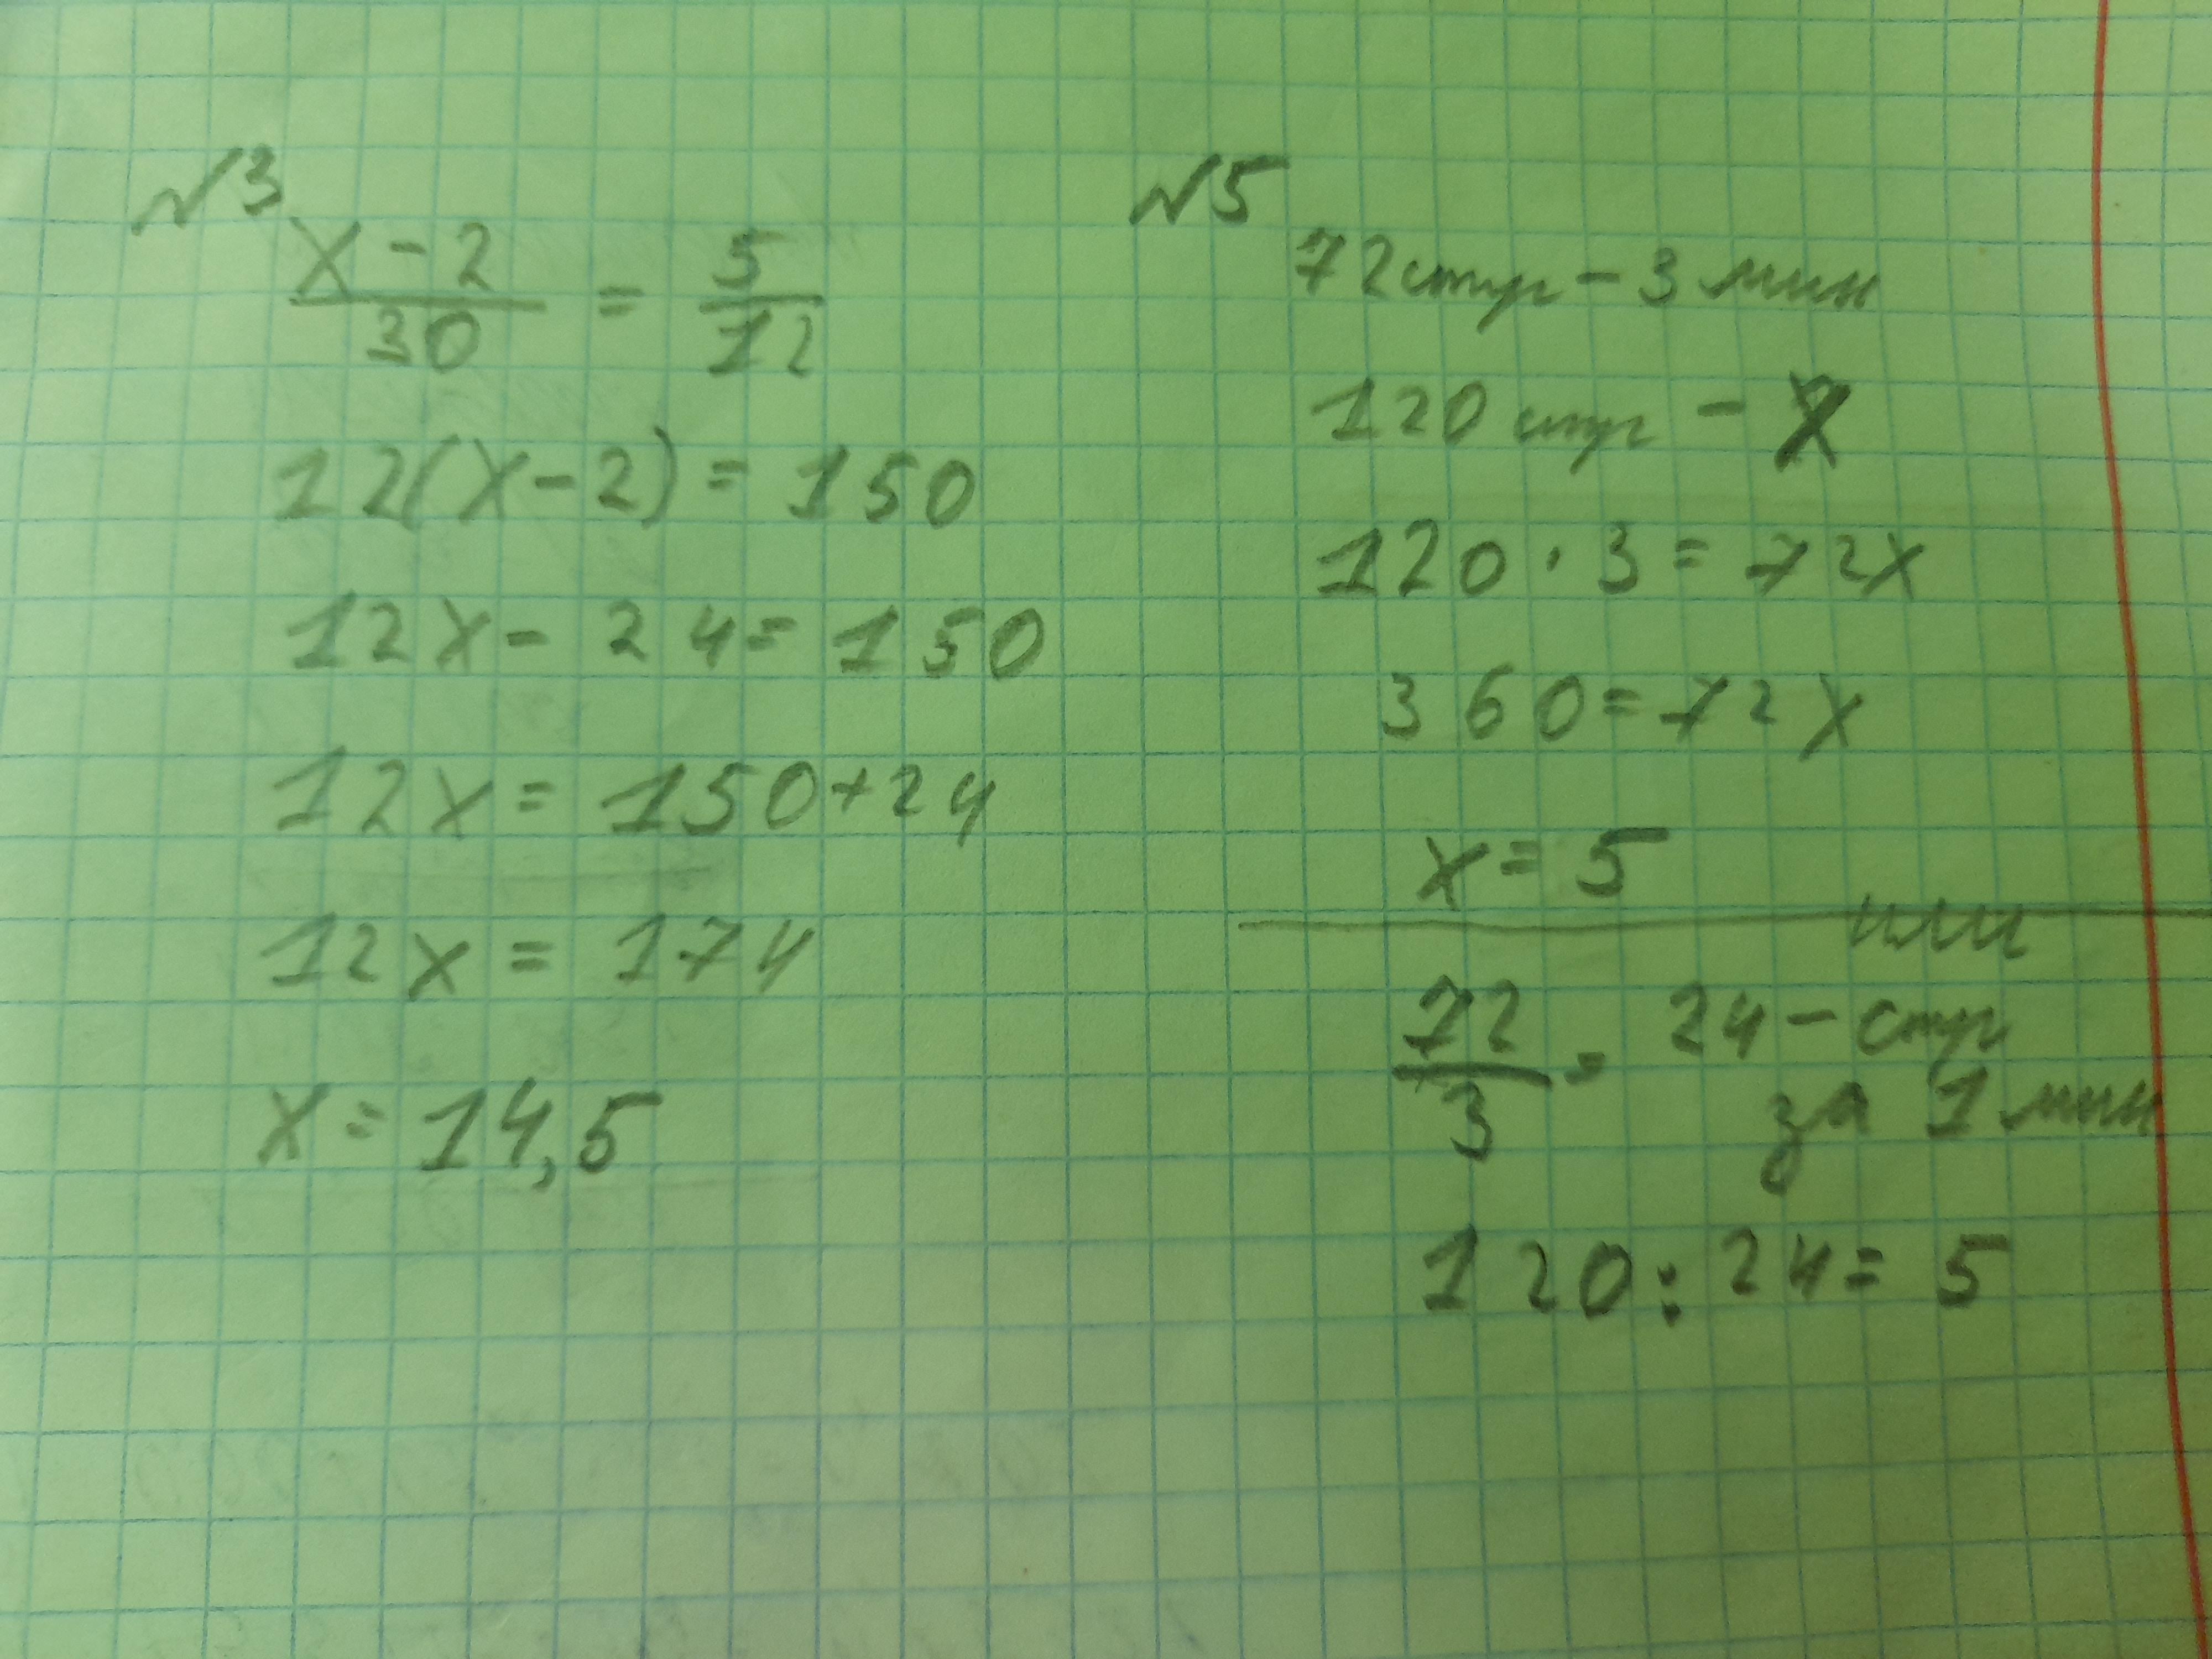 №3
x-2/30 = 5/12
12(x-2) = 150
12x - 24 = 150
12x = 150+24
12x = 174
x = 14,5
№5
72 студ - 3 мин
120 студ - x
120 · 3 = 72x
360 = 72x
x = 5
или
72/3 = 24 - студ
за 1 мин
120 : 24 = 5